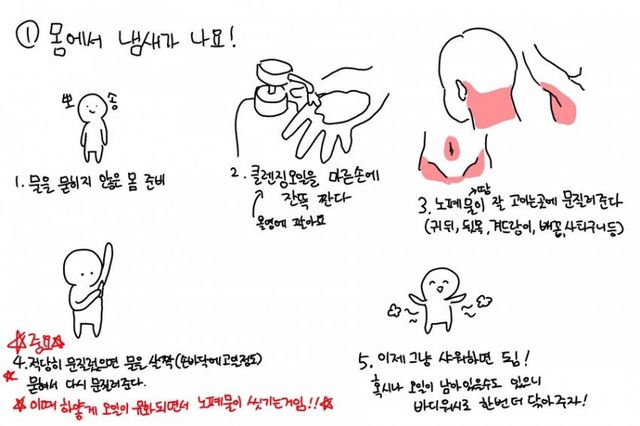 ① 몸에서 냄새가 나요!
뽀 송
1. 물을 묻히지 않은 몸 준비
2. 클렌징오일을 마른손에
잔뜩 짠다
올영에 팔아요
땀
3. 노폐물이 잘 고이는곳에 문질러준다
(귀 뒤, 뒷목, 겨드랑이, 배꼽, 사타구니 등)
☆중요☆
4. 적당히 문질렀으면 물을 살짝(손바닥에 고인정도)
☆ 묻혀서 다시 문질러준다.
☆이때 하얗게 오일이 유화되면서 노폐물이 씻기는거임!!☆
5. 이제 그냥 샤워하면 됨!
혹시나 오일이 남아있을수도 있으니
바디워시로 한번 더 닦아주자!